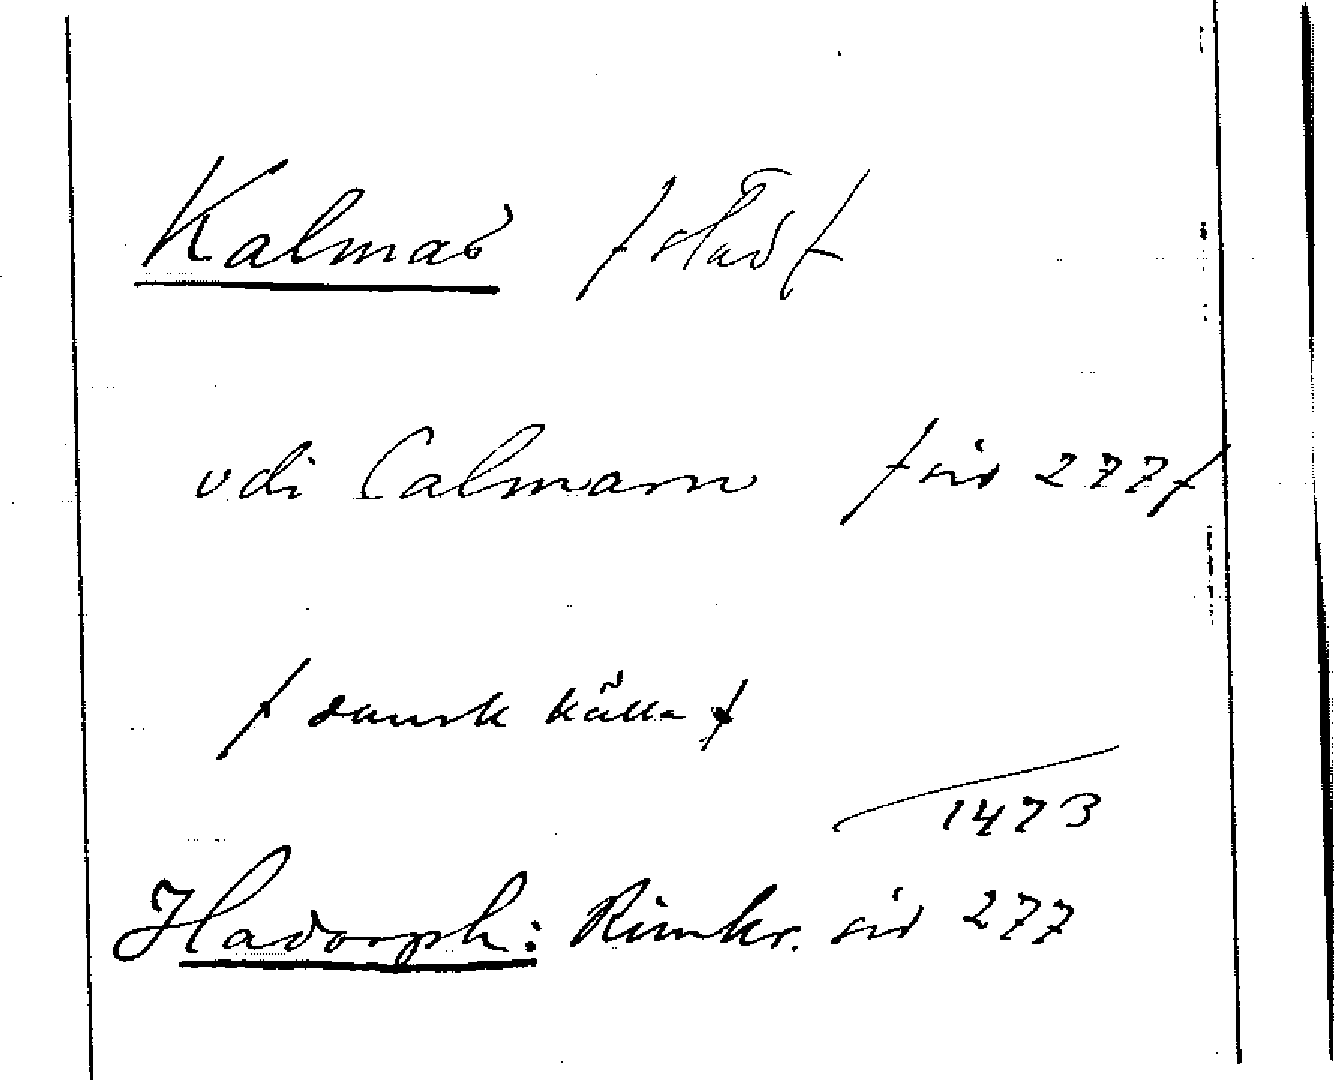 Kalmar /stad/
vdi Calmarn /sid 277/
/dansk källa/
1473
Hadorph: Rimkr. sid 277